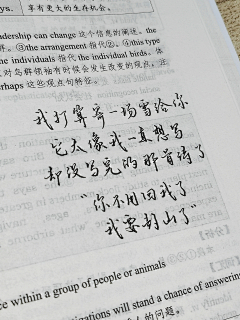 享有更大的生存机会。
adership can change 这个信息的阐述。the
③the arrangement 指代②。④this type
he individuals 指代 the individual birds。体
对鸟群领袖有时候会发生改变的观点。注
rhaps 这些观点句特征。
我打算寄一场雪给你
它太像我一直想写
却没写完的那首诗了
“你不用回我了
我要封山了”
ce within a group of people or animals
igations will stand a chance of answering
的问题。